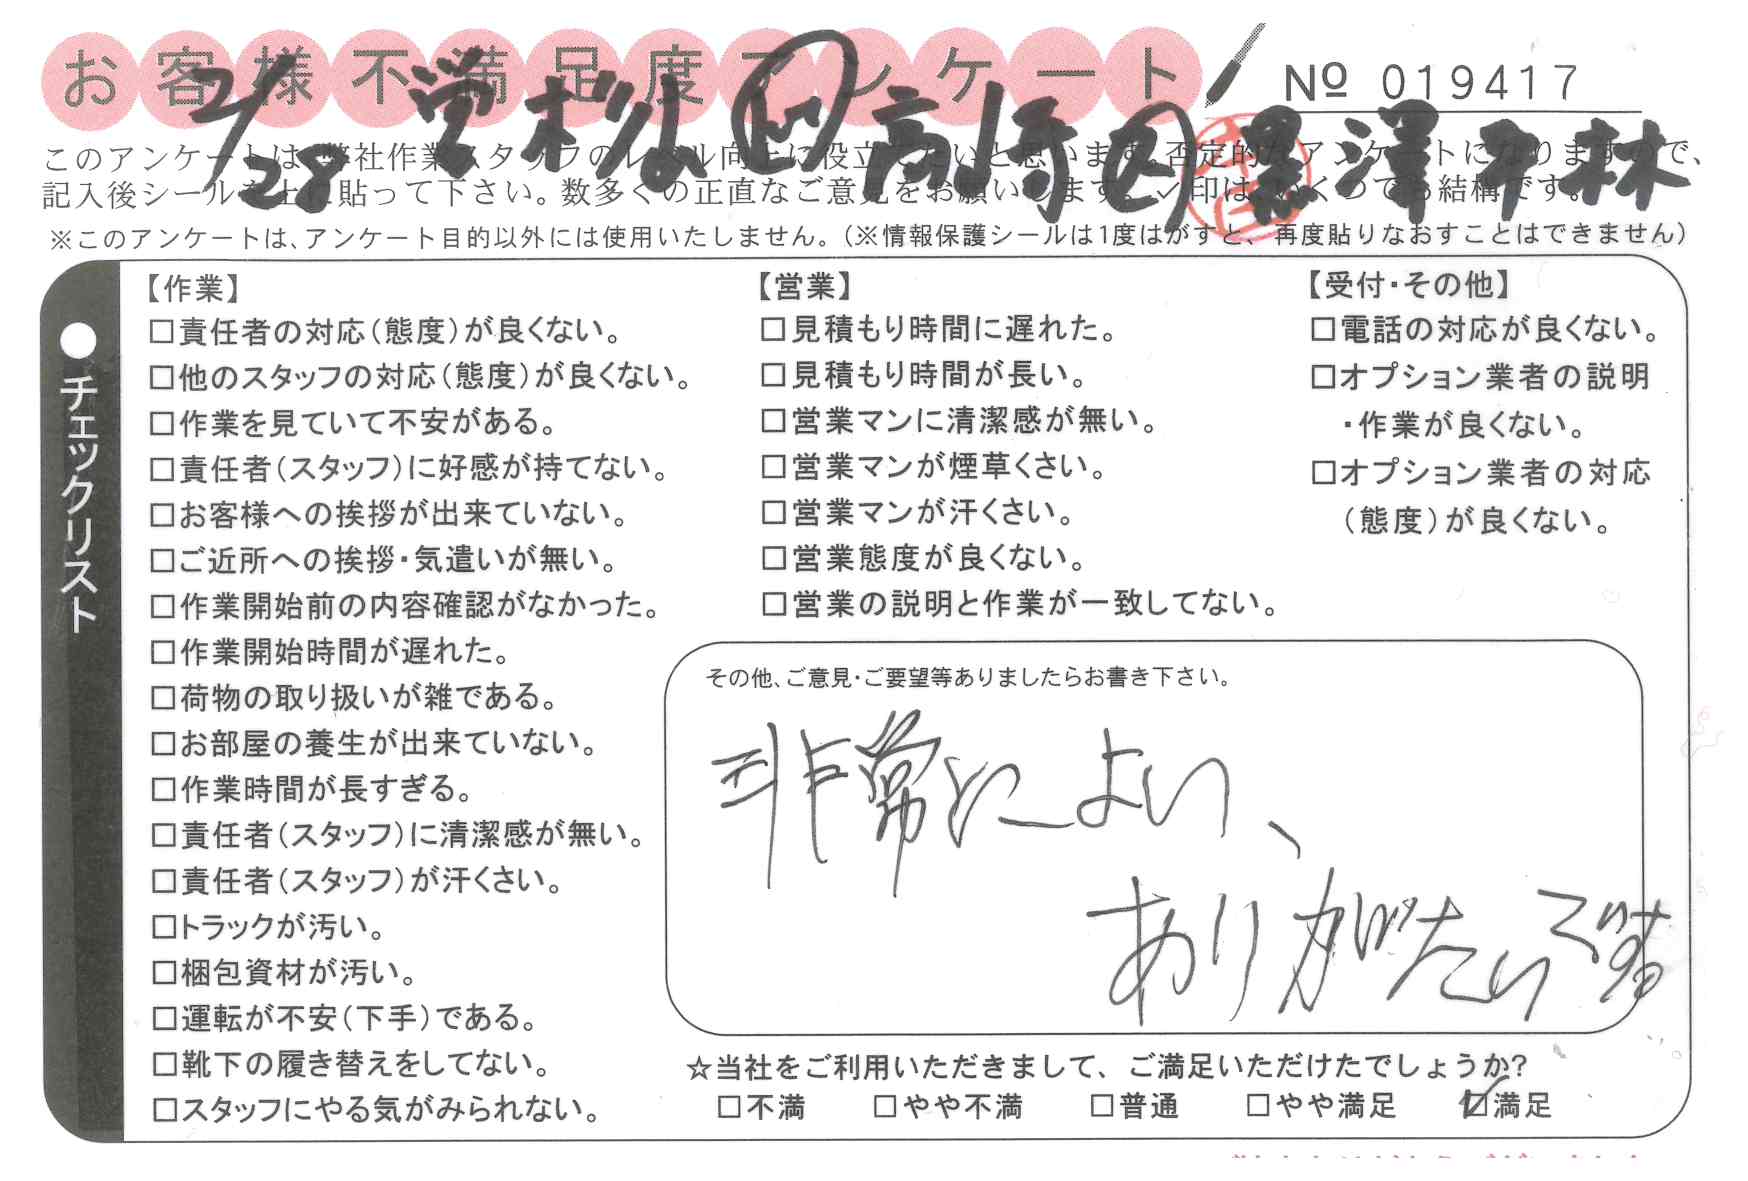 お客様不満足度アンケート
№ 019417
2/28 営 松 高崎 黒澤 小林
このアンケートは、弊社作業スタッフのレベル向上に役立てたいと思います。否定的なアンケートになりますので、
記入後シールを上に貼って下さい。数多くの正直なご意見をお願いします。レ印はいくつでも結構です。
※このアンケートは、アンケート目的以外には使用いたしません。(※情報保護シールは1度はがすと、再度貼りなおすことはできません)
●チェックリスト
【作業】
□責任者の対応(態度)が良くない。
□他のスタッフの対応(態度)が良くない。
□作業を見ていて不安がある。
□責任者(スタッフ)に好感が持てない。
□お客様への挨拶が出来ていない。
□ご近所への挨拶・気遣いが無い。
□作業開始前の内容確認がなかった。
□作業開始時間が遅れた。
□荷物の取り扱いが雑である。
□お部屋の養生が出来ていない。
□作業時間が長すぎる。
□責任者(スタッフ)に清潔感が無い。
□責任者(スタッフ)が汗くさい。
□トラックが汚い。
□梱包資材が汚い。
□運転が不安(下手)である。
□靴下の履き替えをしてない。
□スタッフにやる気がみられない。
【営業】
□見積もり時間に遅れた。
□見積もり時間が長い。
□営業マンに清潔感が無い。
□営業マンが煙草くさい。
□営業マンが汗くさい。
□営業態度が良くない。
□営業の説明と作業が一致してない。
【受付・その他】
□電話の対応が良くない。
□オプション業者の説明
・作業が良くない。
□オプション業者の対応
(態度)が良くない。
その他、ご意見・ご要望等ありましたらお書き下さい。
非常によい、
ありがたいです
☆当社をご利用いただきまして、ご満足いただけたでしょうか?
□不満 □やや不満 □普通 □やや満足 ☑満足